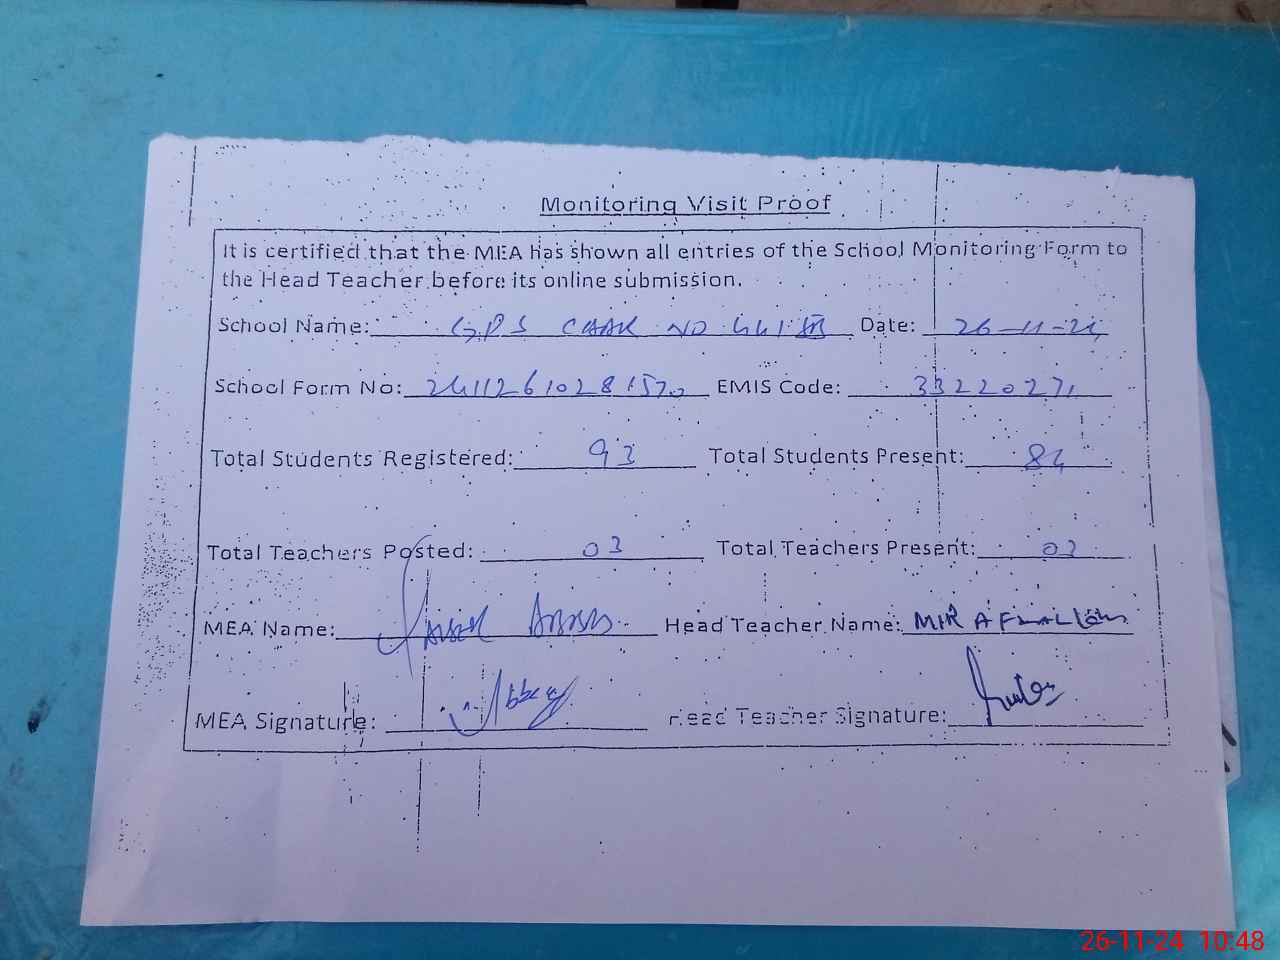 Monitoring Visit Proof
It is certified that the MEA has shown all entries of the School Monitoring Form to
the Head Teacher before its online submission.
School Name: GPS CHAK NO 441 Date: 26-11-24
School Form No: EMIS Code: 33220271
Total Students Registered: 93 Total Students Present: 84
Total Teachers Posted: 03 Total Teachers Present: 03
MEA Name: Abbas Head Teacher Name: MIR AFZAL
MEA Signature: Head Teacher Signature:
26-11-24 10:48